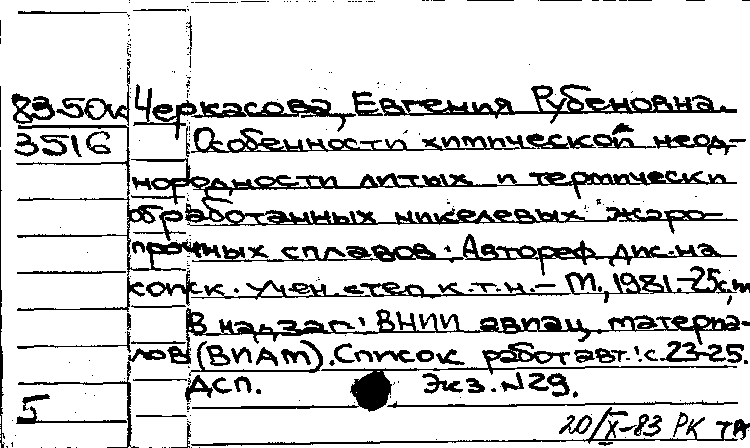 83-50к Черкасова, Евгения Рубеновна.
3516 Особенности химической неод-
нородности литых и термически
обработанных никелевых жаро-
прочных сплавов: Автореф. дис. на
соиск. учен. степ. к.т.н. - М., 1981. - 25с,
В надзаг: ВНИИ авиац. материа-
лов (ВИАМ). Список работ авт.: с. 23-25.
ДСП. Экз. N29.
5
20/X-83 РК ТА